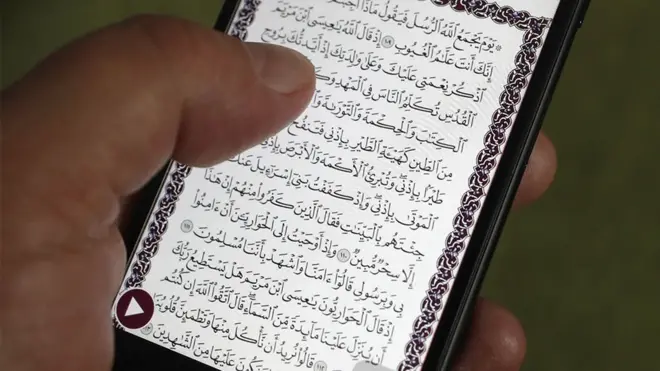 ۞ يَوْمَ يَجْمَعُ ٱللَّهُ ٱلرُّسُلَ فَيَقُولُ مَاذَآ
إِنَّكَ أَنتَ عَلَّٰمُ ٱلْغُيُوبِ ١٠٩ إِذْ قَالَ ٱللَّهُ يَٰعِيسَى ٱبْنَ مَرْيَمَ
ٱذْكُرْ نِعْمَتِي عَلَيْكَ وَعَلَىٰ وَٰلِدَتِكَ إِذْ أَيَّدتُّكَ بِرُوحِ
ٱلْقُدُسِ تُكَلِّمُ ٱلنَّاسَ فِي ٱلْمَهْدِ
ٱلْكِتَٰبَ وَٱلْحِكْمَةَ وَٱلتَّوْرَىٰةَ
مِنَ ٱلطِّينِ كَهَيْـَٔةِ ٱلطَّيْرِ بِإِذْنِي فَتَنفُخُ
طَيْرًۢا بِإِذْنِي وَتُبْرِئُ ٱلْأَكْمَهَ وَٱلْأَبْرَصَ
ٱلْمَوْتَىٰ بِإِذْنِي وَإِذْ كَفَفْتُ بَنِيٓ إِسْرَٰٓءِيلَ عَنكَ
جِئْتَهُم بِٱلْبَيِّنَٰتِ فَقَالَ ٱلَّذِينَ كَفَرُوا۟ مِنْهُمْ إِنْ هَٰذَآ
إِلَّا سِحْرٌ مُّبِينٌ ١١٠ وَإِذْ أَوْحَيْتُ إِلَى ٱلْحَوَارِيِّـۧنَ أَنْ ءَامِنُوا۟
بِي وَبِرَسُولِي قَالُوٓا۟ ءَامَنَّا وَٱشْهَدْ بِأَنَّنَا مُسْلِمُونَ ١١١
إِذْ قَالَ ٱلْحَوَارِيُّونَ يَٰعِيسَى ٱبْنَ مَرْيَمَ هَلْ يَسْتَطِيعُ رَبُّكَ
أَن يُنَزِّلَ عَلَيْنَا مَآئِدَةً مِّنَ ٱلسَّمَآءِ قَالَ ٱتَّقُوا۟ ٱللَّهَ إِن كُنتُم
١١٢ قَالُوا۟ نُرِيدُ أَن نَّأْكُلَ مِنْهَا وَتَطْمَئِنَّ قُلُوبُنَا
وَنَكُونَ عَلَيْهَا مِنَ ٱلشَّٰهِدِينَ ١١٣